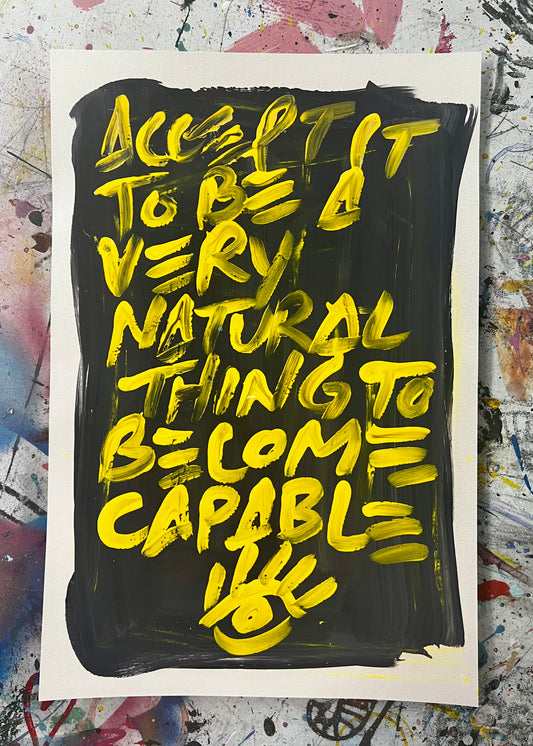 ACCEPT IT
TO BE A
VERY
NATURAL
THING TO
BECOME
CAPABLE